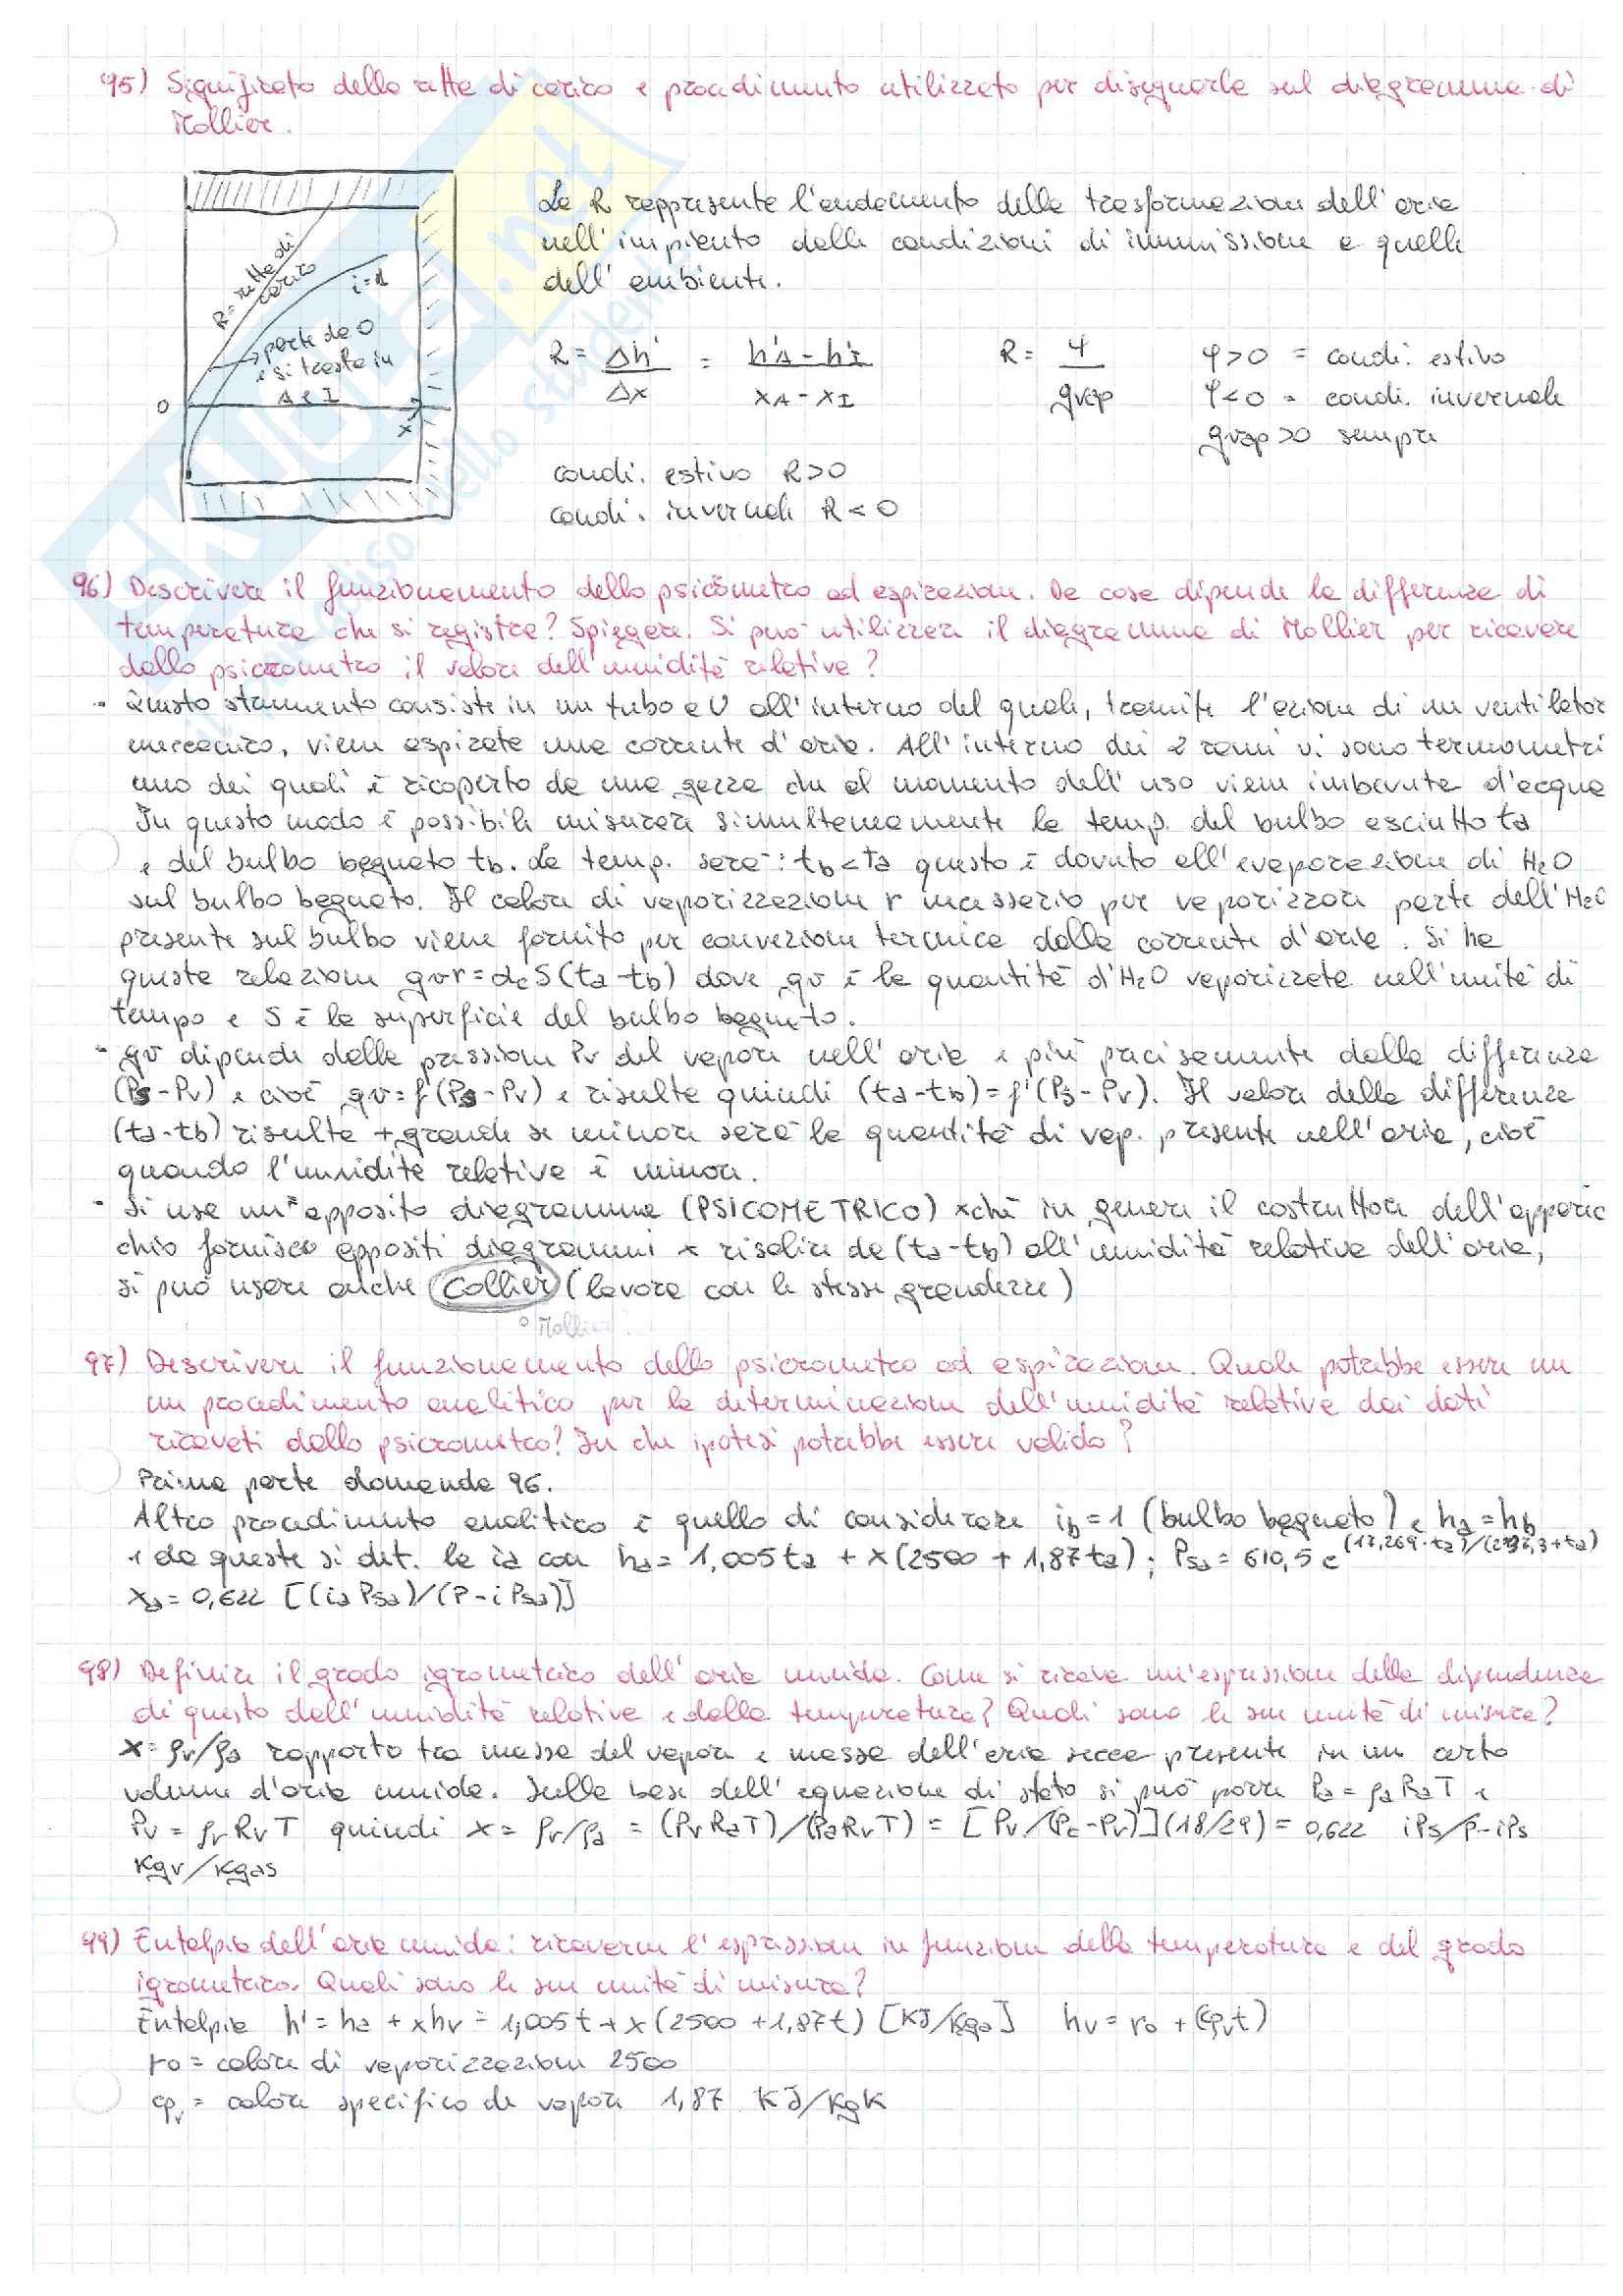 95) Significato della retta di carico e procedimento utilizzato per disegnarla sul diagramma di
Mollier.
R= retta di
carico
i=1
parte da 0
e si trasla in
A e I
0
x
La R rappresenta l'andamento delle trasformazioni dell'aria
nell'impianto dalle condizioni di immissione a quelle
dell'ambiente.
R = Δh'/Δx = h'A - h'I / xA - xI
R = φ / gvap
φ>0 = condi. estivo
φ<0 = condi. invernale
gvap>0 sempre
condi. estivo R>0
condi. invernale R<0
96) Descrivere il funzionamento dello psicrometro ad aspirazione. Da cosa dipende la differenza di
temperatura che si registra? Spiegare. Si può utilizzare il diagramma di Mollier per ricavare
dallo psicrometro il valore dell'umidità relativa?
- Questo strumento consiste in un tubo a U all'interno del quale, tramite l'azione di un ventilator
meccanico, viene aspirata una corrente d'aria. All'interno dei 2 rami vi sono termometri
uno dei quali è ricoperto da una garza che al momento dell'uso viene imbevuta d'acqua
In questo modo è possibile misurare simultaneamente la temp. del bulbo asciutto ta
e del bulbo bagnato tb. La temp. sarà: tb<ta questo è dovuto all'evaporazione di H2O
sul bulbo bagnato. Il calore di vaporizzazione r necessario per vaporizzare parte dell'H2O
presente sul bulbo viene fornito per convezione termica dalla corrente d'aria. Si ha
questa relazione gvr = αcS(ta-tb) dove gv è la quantità d'H2O vaporizzata nell'unità di
tempo e S è la superficie del bulbo bagnato.
- gv dipende dalla pressione Pv del vapore nell'aria e più precisamente dalla differenza
(Ps-Pv) e cioè gv=f(Ps-Pv) e risulta quindi (ta-tb)=f'(Ps-Pv). Il valore della differenza
(ta-tb) risulta + grande se minore sarà la quantità di vap. presente nell'aria, cioè
quando l'umidità relativa è minore.
- Si usa un apposito diagramma (PSICOMETRICO) xchè in genere il costruttore dell'apparec
chio fornisce appositi diagrammi x risalire da (ta-tb) all'umidità relativa dell'aria,
si può usare anche Collier (lavora con le stesse grandezze)
° Mollier.
97) Descrivere il funzionamento dello psicrometro ad aspirazione. Quale potrebbe essere un
un procedimento analitico per la determinazione dell'umidità relativa dai dati
ricavati dallo psicrometro? In che ipotesi potrebbe essere valido?
Prima parte domanda 96.
Altro procedimento analitico è quello di considerare ib=1 (bulbo bagnato) e ha=hb
e da queste si det. la ia con ha= 1,005ta + x(2500 + 1,87ta); Psa= 610,5 e^(17,269·ta)/(237,3+ta)
xa= 0,622 [(ia Psa)/(P-i Psa)]
98) Definire il grado igrometrico dell'aria umida. Come si ricava un'espressione della dipendenza
di questo dall'umidità relativa e dalla temperatura? Quali sono le sue unità di misura?
x= ρv/ρa rapporto tra massa del vapore e massa dell'aria secca presente in un certo
volume d'aria umida. Sulla base dell'equazione di stato si può porre Pa = ρaRaT e
Pv = ρvRvT quindi x= ρv/ρa = (PvRaT)/(PaRvT) = [Pv/(Pc-Pv)](18/29) = 0,622 iPs/P-iPs
Kgv/Kgas
99) Entalpia dell'aria umida: ricavarne l'espressione in funzione della temperatura e del grado
igrometrico. Quali sono le sue unità di misura?
Entalpia h'= ha + xhv = 1,005t + x(2500 + 1,87t) [KJ/Kga] hv= ro + (cpvt)
ro = calore di vaporizzazione 2500
cpv = calore specifico da vapore 1,87 KJ/KgK